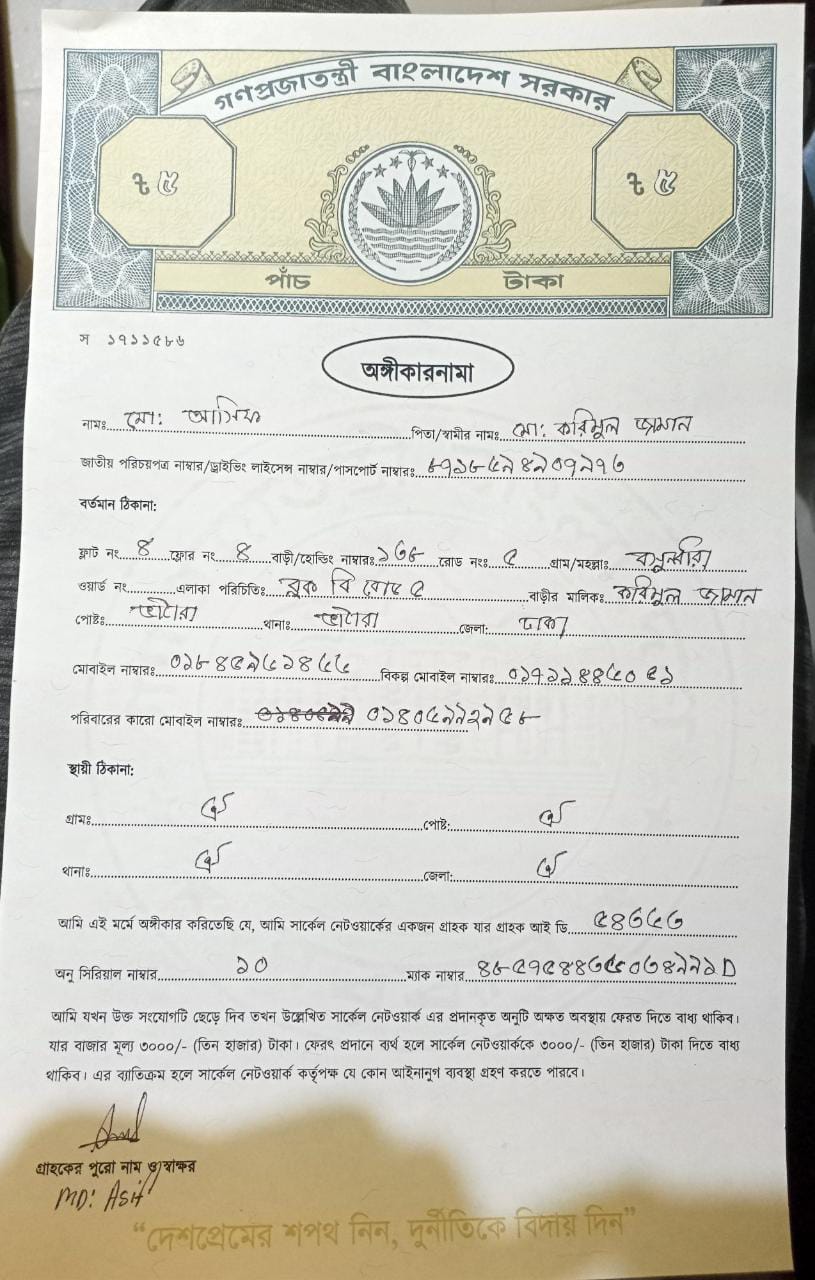 গণপ্রজাতন্ত্রী বাংলাদেশ সরকার
৳ ৫ ৳ ৫
পাঁচ টাকা
স ১৭১১৫৮৬
অঙ্গীকারনামা
নামঃ মো: আসিফ পিতা/স্বামীর নামঃ মো: করিমুল জামান
জাতীয় পরিচয়পত্র নাম্বার/ড্রাইভিং লাইসেন্স নাম্বার/পাসপোর্ট নাম্বারঃ
বর্তমান ঠিকানা:
ফ্লাট নং ৪ ফ্লোর নং ৪ বাড়ী/হোল্ডিং নাম্বারঃ ১৬৮ রোড নংঃ ৫ গ্রাম/মহল্লাঃ
ওয়ার্ড নং এলাকা পরিচিতিঃ ব্লক বি রোড ৫ বাড়ীর মালিকঃ করিমুল জামান
পোষ্টঃ ভাটারা থানাঃ ভাটারা জেলা: ঢাকা
মোবাইল নাম্বারঃ বিকল্প মোবাইল নাম্বারঃ
পরিবারের কারো মোবাইল নাম্বারঃ
স্থায়ী ঠিকানা:
গ্রামঃ ঐ পোষ্ট: ঐ
থানাঃ ঐ জেলা: ঐ
আমি এই মর্মে অঙ্গীকার করিতেছি যে, আমি সার্কেল নেটওয়ার্কের একজন গ্রাহক যার গ্রাহক আই ডি
অনু সিরিয়াল নাম্বার ১০ ম্যাক নাম্বার
আমি যখন উক্ত সংযোগটি ছেড়ে দিব তখন উল্লেখিত সার্কেল নেটওয়ার্ক এর প্রদানকৃত অনুটি অক্ষত অবস্থায় ফেরত দিতে বাধ্য থাকিব।
যার বাজার মূল্য ৩০০০/- (তিন হাজার) টাকা। ফেরৎ প্রদানে ব্যর্থ হলে সার্কেল নেটওয়ার্ককে ৩০০০/- (তিন হাজার) টাকা দিতে বাধ্য
থাকিব। এর ব্যাতিক্রম হলে সার্কেল নেটওয়ার্ক কর্তৃপক্ষ যে কোন আইনানুগ ব্যবস্থা গ্রহণ করতে পারবে।
গ্রাহকের পুরো নাম ও স্বাক্ষর
MD: Asif
“দেশপ্রেমের শপথ নিন, দুর্নীতিকে বিদায় দিন”